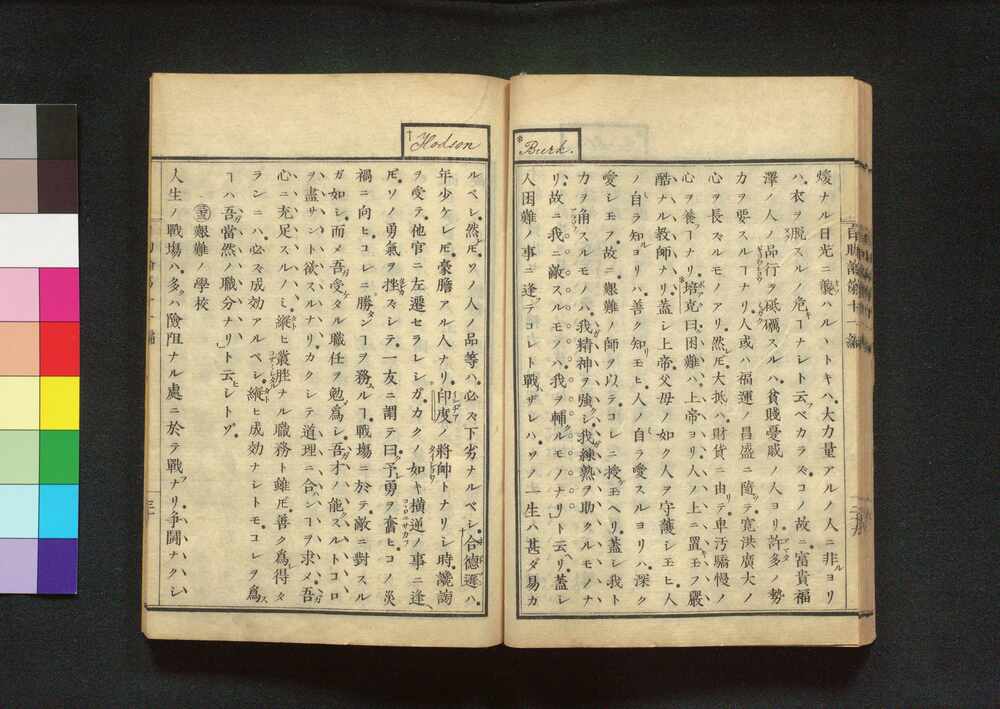 Burk.
煖ナル日光ニ襲ハルヽトキハ、大力量アルノ人ニ非ルヨリ
ハ、衣ヲ脱スルノ危キヿナシト云ベカラズ、コノ故ニ、富貴福
澤ノ人ノ品行ヲ砥礪スルハ、貧賤憂戚ノ人ヨリ許多ノ勢
力ヲ要スルヿナリ、人或ハ福運ノ昌盛ニ隨テ、寛洪廣大ノ
心ヲ長ズルモノアリ、然レ𪜈大抵ハ、財貨ニ由リテ、車汚驕慢ノ
心ヲ養フヿナリ、培克曰、困難ハ、上帝ヨリ人ノ上ニ置玉フ嚴
酷ナル教師ナリ、蓋シ上帝父母ノ如ク人ヲ守護シ玉ヒ、人
ノ自ラ知ルヨリハ、善ク知リ玉ヒ、人ノ自ラ愛スルヨリハ、深ク
愛シ玉フ、故ニ、艱難ノ師ヲ以テ、コレニ授ケ玉ヘリ、蓋シ我ト
力ヲ角スルモノハ、我精神ヲ強クシ、我練熟ヲ助クルモノナ
リ、故ニ、我ニ敵スルモノハ、我ヲ輔クルモノナリト云ヘリ、蓋シ
人困難ノ事ニ逢フテ、コレト戰ハザレハ、ソノ一生ハ甚ダ易カ
百助論第十一編
Hodson
ルベシ、然レ𪜈、ソノ人ノ品等ハ、必ズ下劣ナルベシ、合德遜ハ、
年少ケレ𪜈、豪膽アル人ナリ、印度ノ將帥トナリシ時、讒謗
ヲ受テ、他官ニ左遷セラレシガ、カクノ如キ横逆ノ事ニ逢ヘ
𪜈、ソノ勇氣ヲ挫カズシテ、一友ニ謂テ曰、予勇ヲ奮ヒ、コノ災
禍ニ向ヒ、コレニ勝タンヿヲ務ムルヿ、戰塲ニ於テ、敵ニ對スル
ガ如シ、而メ吾受ケタル職任ヲ勉メ爲シ、吾才ノ能スルトコロ
ヲ盡サント欲スルナリ、カクシテ道理ニ合ハンヿヲ求メ、吾ガ
心ニ充足スルノミ、縱ヒ叢脞ナル職務ト雖𪜈、善ク爲シ得タ
ランニハ、必ズ成効アルベシ、縱ヒ成効ナシトモ、コレヲ爲ス
ヿハ吾ガ當然ノ職分ナリト云ヒシトゾ、
艱難ノ學校
人生ノ戰塲ハ、多クハ險阻ナル處ニ於テ戰フナリ、争鬪ナクシ